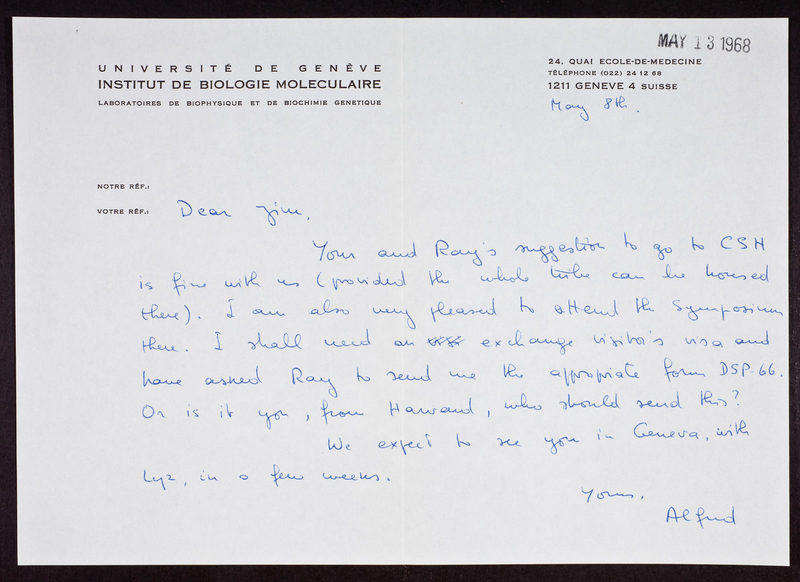 MAY 13 1968
UNIVERSITÉ DE GENÈVE
INSTITUT DE BIOLOGIE MOLECULAIRE
LABORATOIRES DE BIOPHYSIQUE ET DE BIOCHIMIE GENETIQUE
24, QUAI ECOLE-DE-MEDECINE
TÉLÉPHONE (022) 24 12 68
1211 GENEVE 4 SUISSE
May 8th.
NOTRE RÉF.:
VOTRE RÉF.:
Dear Jim,
Your and Ray's suggestion to go to CSH
is fine with us (provided the whole tribe can be housed
there). I am also very pleased to attend the Symposium
there. I shall need an exchange visitor's visa and
have asked Ray to send me the appropriate form DSP-66.
Or is it you, from Harvard, who should send this?
We expect to see you in Geneva, with
Lyz, in a few weeks.
Yours,
Alfred